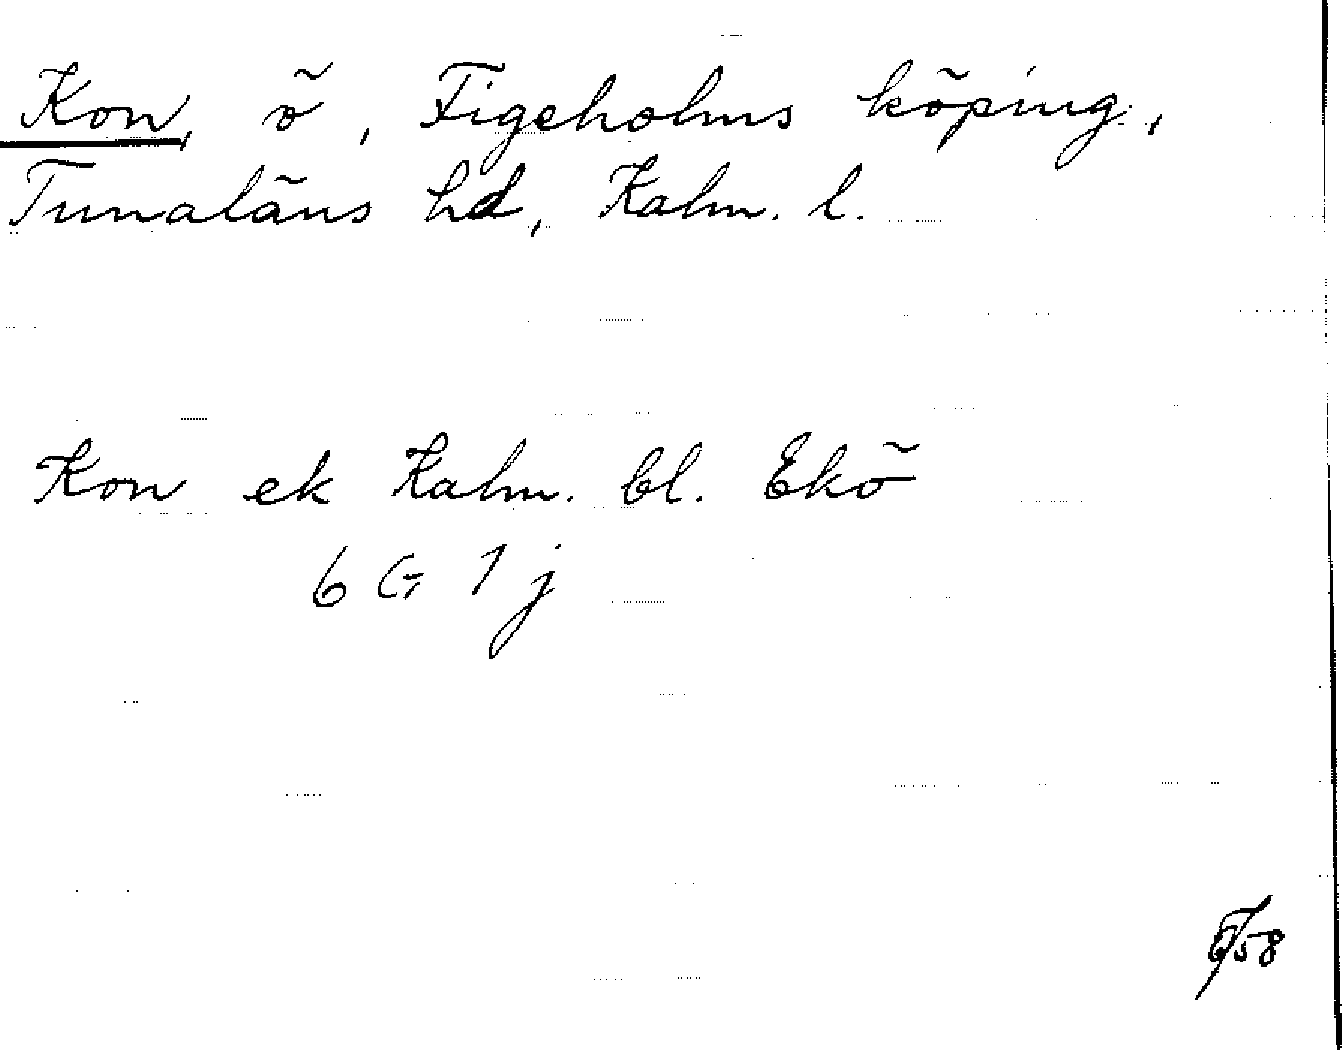 Kon, ö, Figeholms köping,
Tunaläns hd, Kalm. l.
Kon ek Kalm. bl. Ekö
6 G 1 j